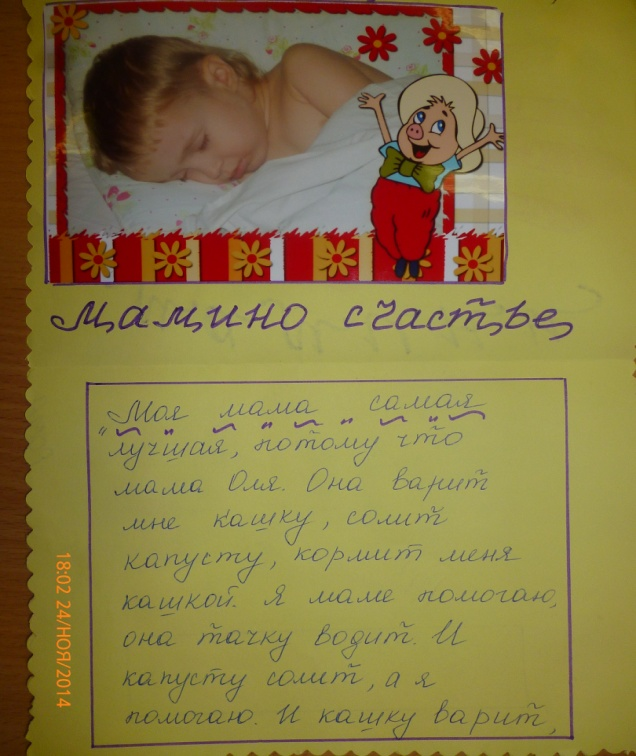 Мамино счастье
Моя мама самая
лучшая, потому что
мама Оля. Она варит
мне кашку, солит
капусту, кормит меня
кашкой. Я маме помогаю,
она тачку водит. И
капусту солит, а я
помогаю. И кашку варит,
18:02 24/НОЯ/2014